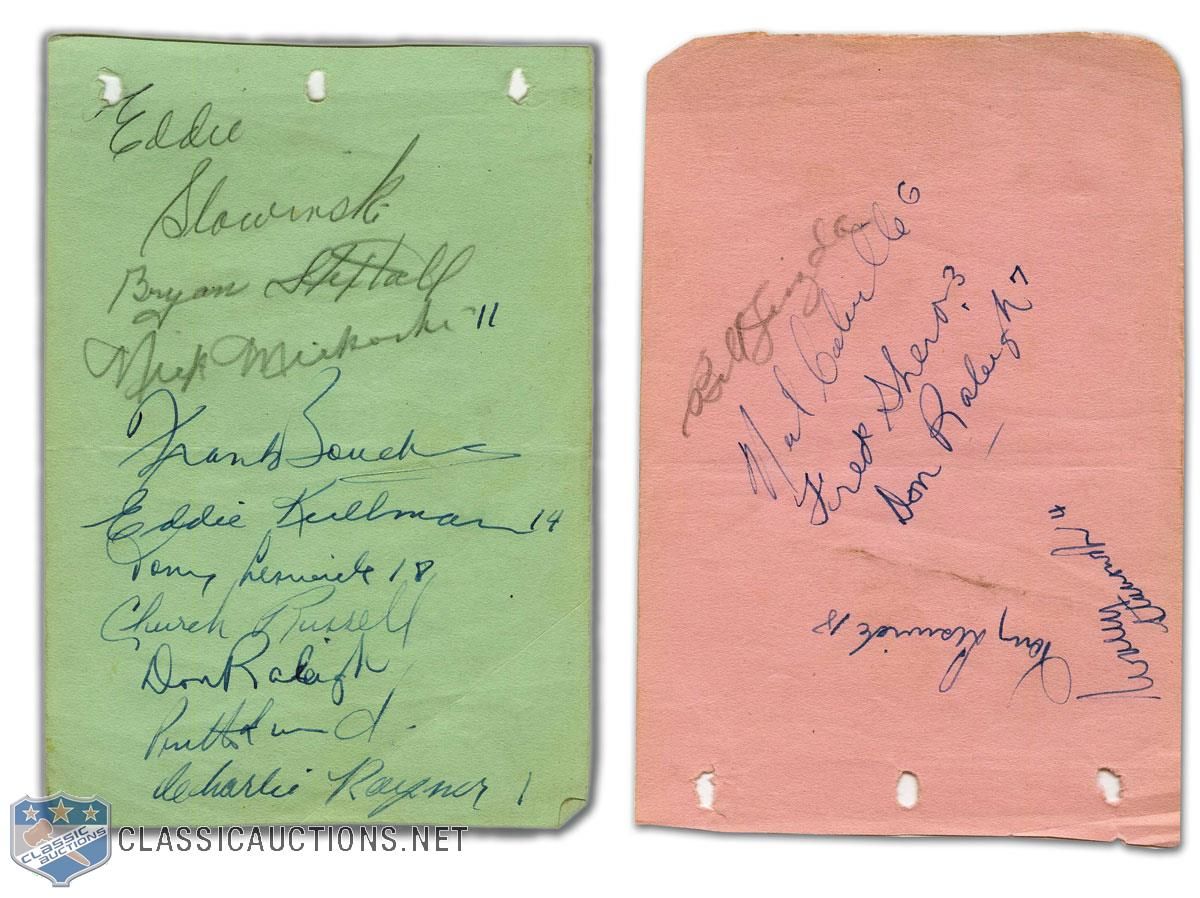 Eddie
Slowinski
Bryan Hextall
Nick Mickoski 11
Frank Boucher
Eddie Kullman 14
Tony Leswick 18
Church Russell
Don Raleigh
Charlie Rayner 1
6
Fred Shero 3
Don Raleigh 7
Tony Leswick 18
CLASSIC
AUCTIONS
CLASSICAUCTIONS.NET